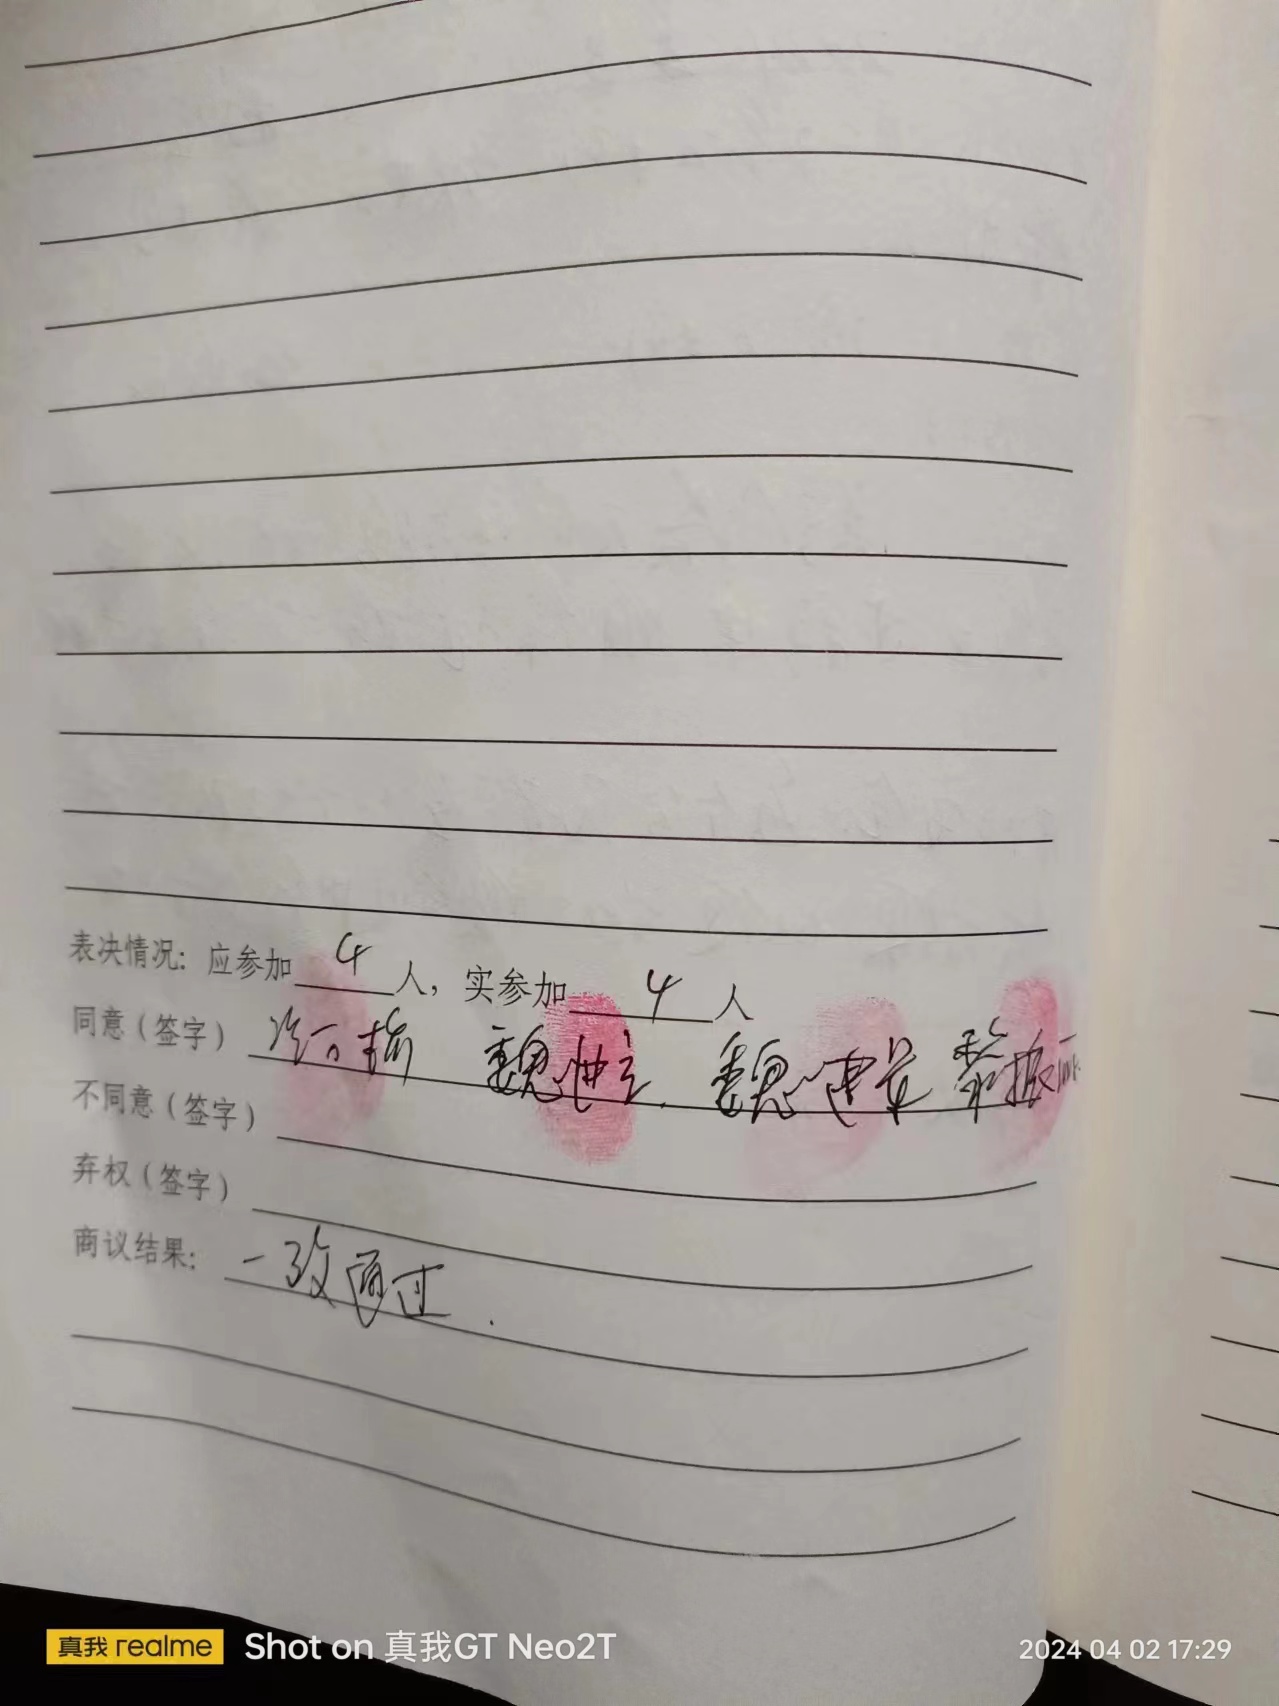 表决情况：应参加 4 人，实参加 4 人
同意（签字） 魏 魏建 黎振
不同意（签字）
弃权（签字）
商议结果： 一致通过.
真我 realme Shot on 真我GT Neo2T 2024 04 02 17:29